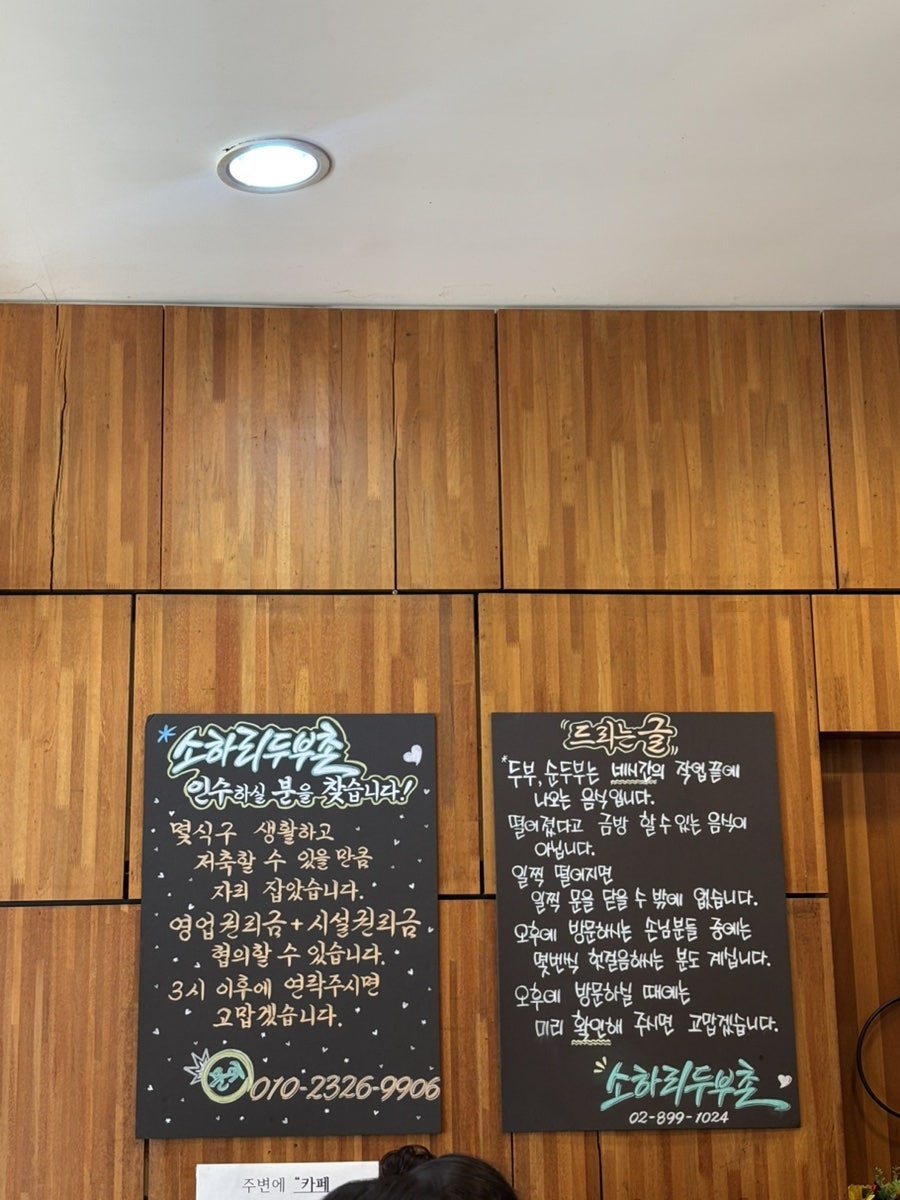 소하리두부촌
인수하실 분을 찾습니다!
몇식구 생활하고
저축할 수 있을 만큼
자리 잡았습니다.
영업권리금+시설권리금
협의할 수 있습니다.
3시 이후에 연락주시면
고맙겠습니다.
010-2326-9906
"드리는 글"
*두부, 순두부는 네시간의 작업끝에
나오는 음식입니다.
떨어졌다고 금방 할 수 있는 음식이
아닙니다.
일찍 떨어지면
일찍 문을 닫을 수 밖에 없습니다.
오후에 방문하시는 손님분들 중에는
몇번씩 헛걸음하시는 분도 계십니다.
오후에 방문하실 때에는
미리 확인해 주시면 고맙겠습니다.
소하리두부촌
02-899-1024
주변에 "카페